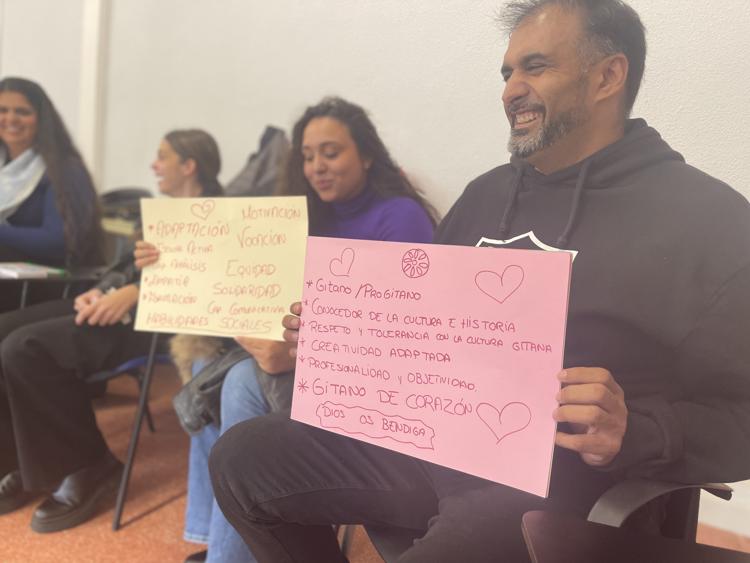 * ADAPTACIÓN MOTIVACIÓN
ACTIVA VOCACIÓN
ANÁLISIS EQUIDAD
* EMPATÍA SOLIDARIDAD
CAP COMUNICATIVA
HABILIDADES SOCIALES
* GITANO / PROGITANO
* CONOCEDOR DE LA CULTURA E HISTORIA
* RESPETO Y TOLERANCIA CON LA CULTURA GITANA
* CREATIVIDAD ADAPTADA
* PROFESIONALIDAD Y OBJETIVIDAD.
* GITANO DE CORAZÓN
DIOS OS BENDIGA